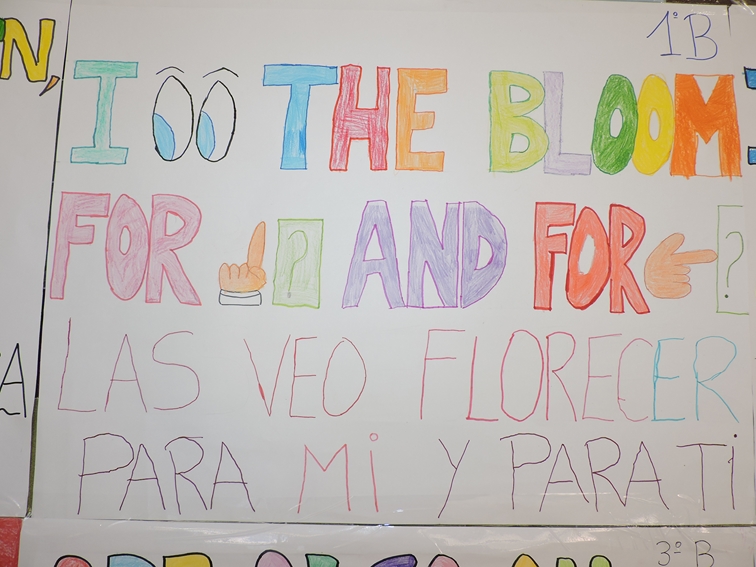 1º B
I THE BLOOM
FOR ? AND FOR ?
LAS VEO FLORECER
PARA Mi Y PARA Ti
3º B